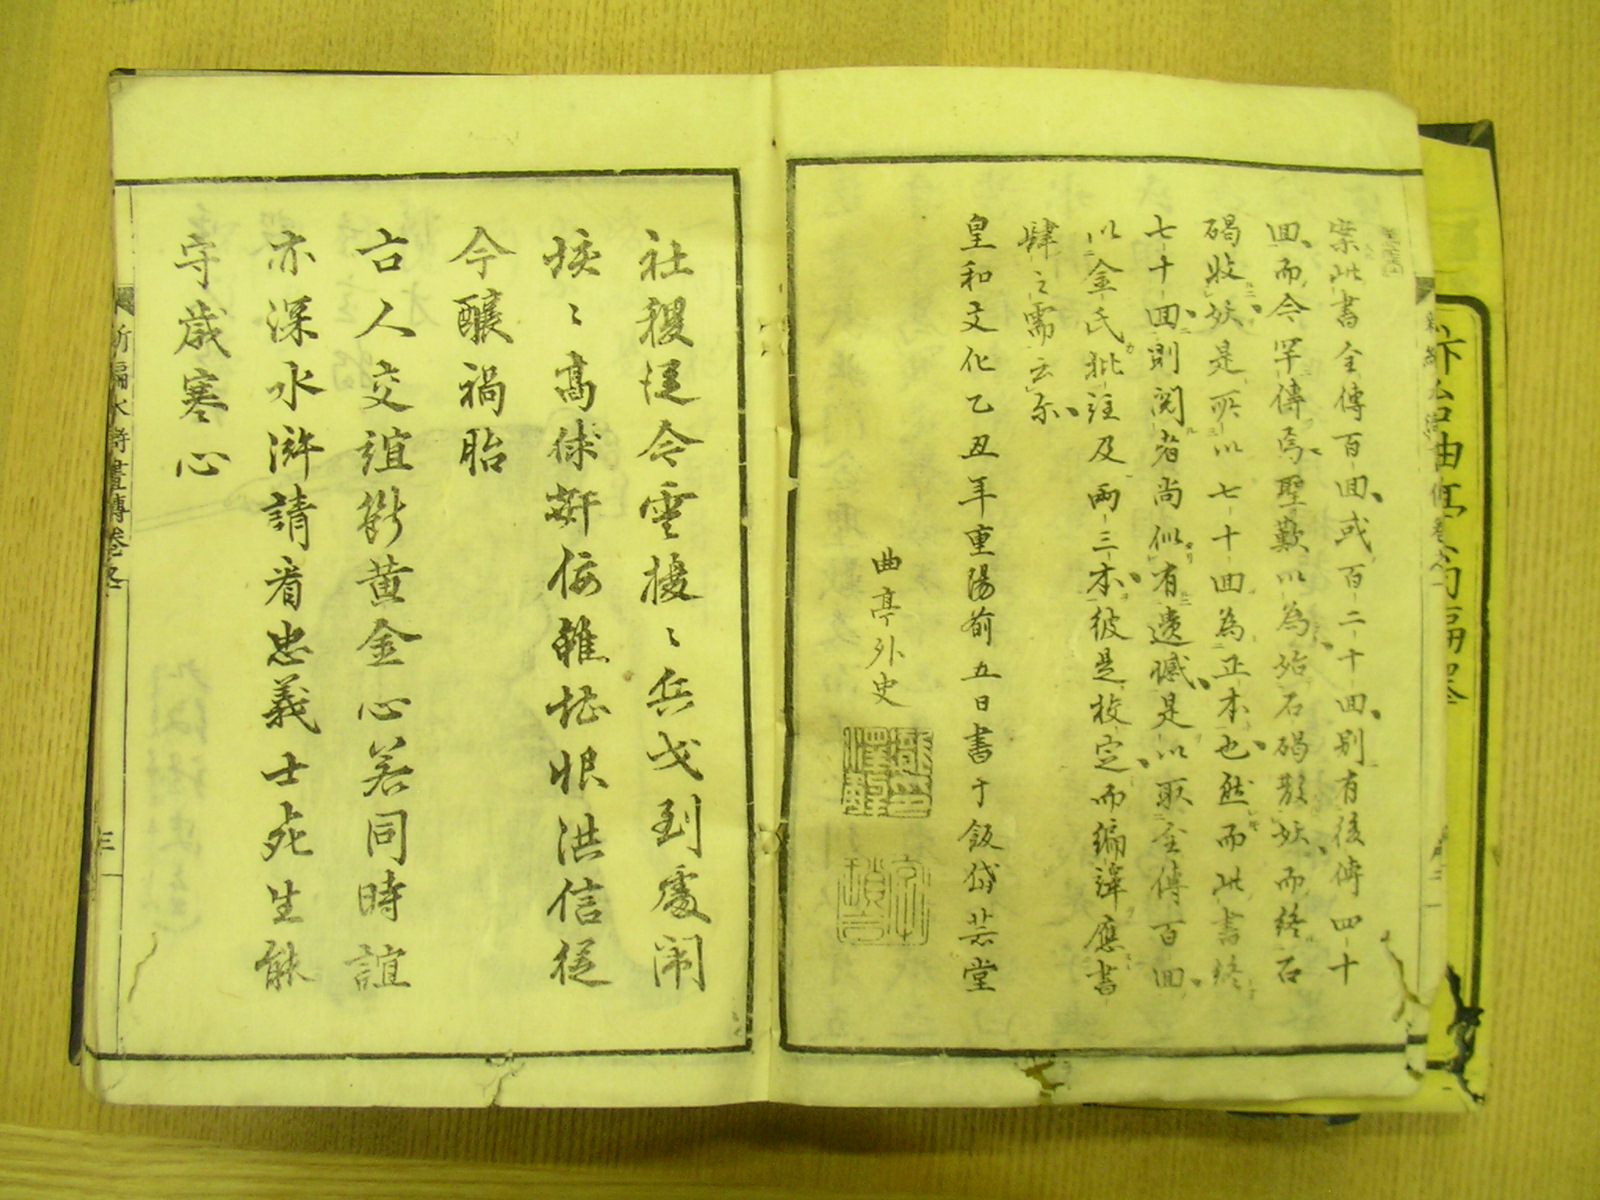 案此書全傳百回或百二十回別有後傳四十
回而今罕傳焉聖歎以為始石碣散妖而終石
碣收妖是所以七十回為正本也然而此書終
七十回則閱者尚似有遺憾是以取全傳百回
以金氏批註及兩三本彼是校定而編譯應書
肆之需云尓
皇和文化乙丑年重陽前五日書于飯岱芸堂
曲亭外史
社稷從今雲擾〻兵戈到處鬧
垓〻高俅奸佞雖堪恨洪信從
今釀禍胎
古人交誼斷黃金心若同時誼
亦深水滸請看忠義士死生能
守歲寒心
新編水滸畫傳卷之
三